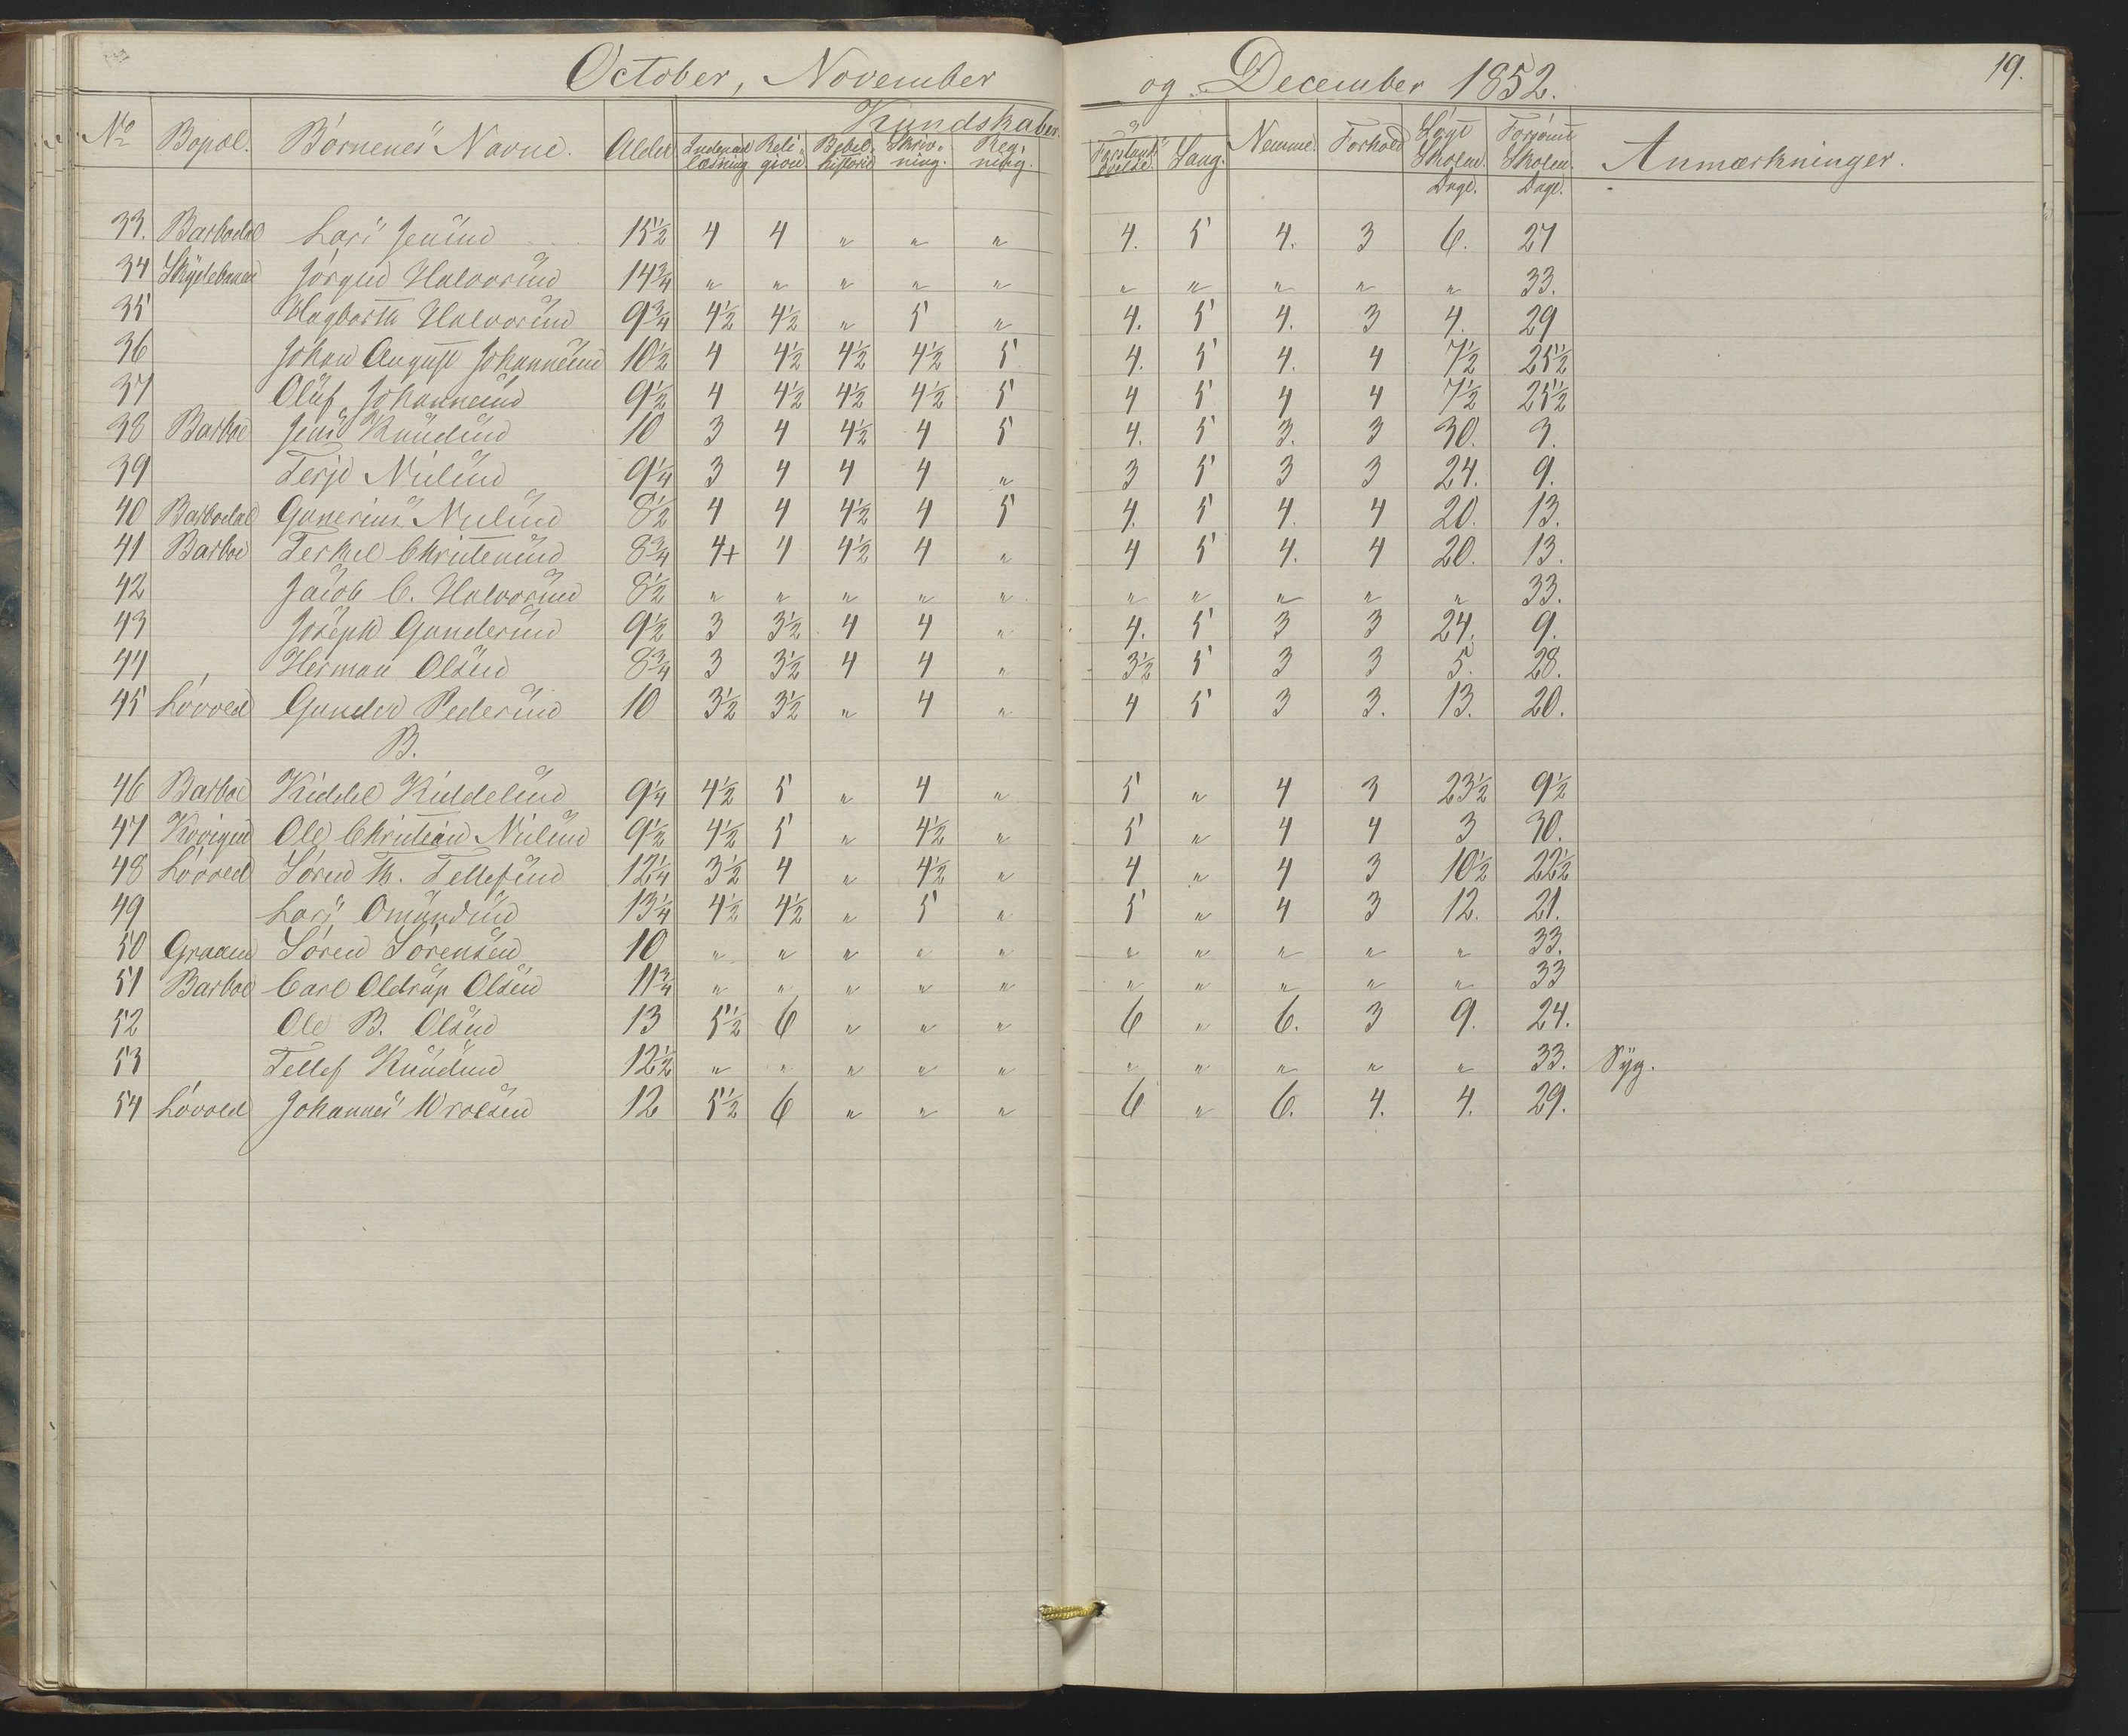 October, November og December 1852. 19.
No Bopæl. Børnenes Navne. Alder Kundskaber. Indenad læsning Reli- gion Bibel historie Skriv- ning. Reg- ning. Forstands øvelse. Sang. Nemme. Forhold Søgt Skolen. Dage. Forsømt Skolen. Dage. Anmærkninger.
33. Barbodal Lars Jensen 15½ 4 4 " " " 4. 5 4. 3 6. 27
34 Skydebanen Jørgen Halvorsen 14¾ " " " " " " " " " " 33.
35 Hagbarth Halvorsen 9¾ 4½ 4½ " 5 " 4. 5 4. 3 4. 29
36 Johan August Johannesen 10½ 4 4½ 4½ 4½ 5 4. 5 4. 4 7½ 25½
37 Oluf Johannesen 9½ 4 4½ 4½ 4½ 5 4 5 4 4 7½ 25½
38 Barboe Jens Knudsen 10 3 4 4½ 4 5 4. 5 3. 3 30. 3.
39 Terje Nielsen 9¼ 3 4 4 4 " 3 5 3 3 24. 9.
40 Barbodal Gunerius Nielsen 8½ 4 4 4½ 4 5 4. 5 4. 4 20. 13.
41 Barboe Terkel Christensen 8¾ 4+ 4 4½ 4 " 4 5 4. 4 20. 13.
42 Jacob C. Halvorsen 8½ " " " " " " " " " " 33.
43 Joseph Gundersen 9½ 3 3½ 4 4 " 4. 5 3 3 24. 9.
44 Herman Olsen 8¾ 3 3½ 4 4 " 3½ 5 3 3 5. 28.
45 Løvold Gunder Pedersen 10 3½ 3½ " 4 " 4 5 3 3. 13. 20.
B.
46 Barboe Kiddel Kiddelsen 9¼ 4½ 5 " 4 " 5 " 4 3 23½ 9½
47 Ole Christian Nielsen 9½ 4½ 5 " 4½ " 5 " 4 4 3 30.
48 Løvold Søren Th. Tellefsen 12¼ 3½ 4 " 4½ " 4 " 4 3 10½ 22½
49 Lars Omundsen 13¼ 4½ 4½ " 5 " 5 " 4 3 12. 21.
50 Graaen Søren Sørensen 10 " " " " " " " " " " 33.
51 Barboe Carl Oldrup Olsen 11¾ " " " " " " " " " " 33
52 Ole B. Olsen 13 5½ 6 " " " 6 " 6. 3 9. 24.
53 Tellef Knudsen 12½ " " " " " " " " " " 33. Syg.
54 Løvold Johannes Wroldsen 12 5½ 6 " " " 6 " 6. 4. 4. 29.